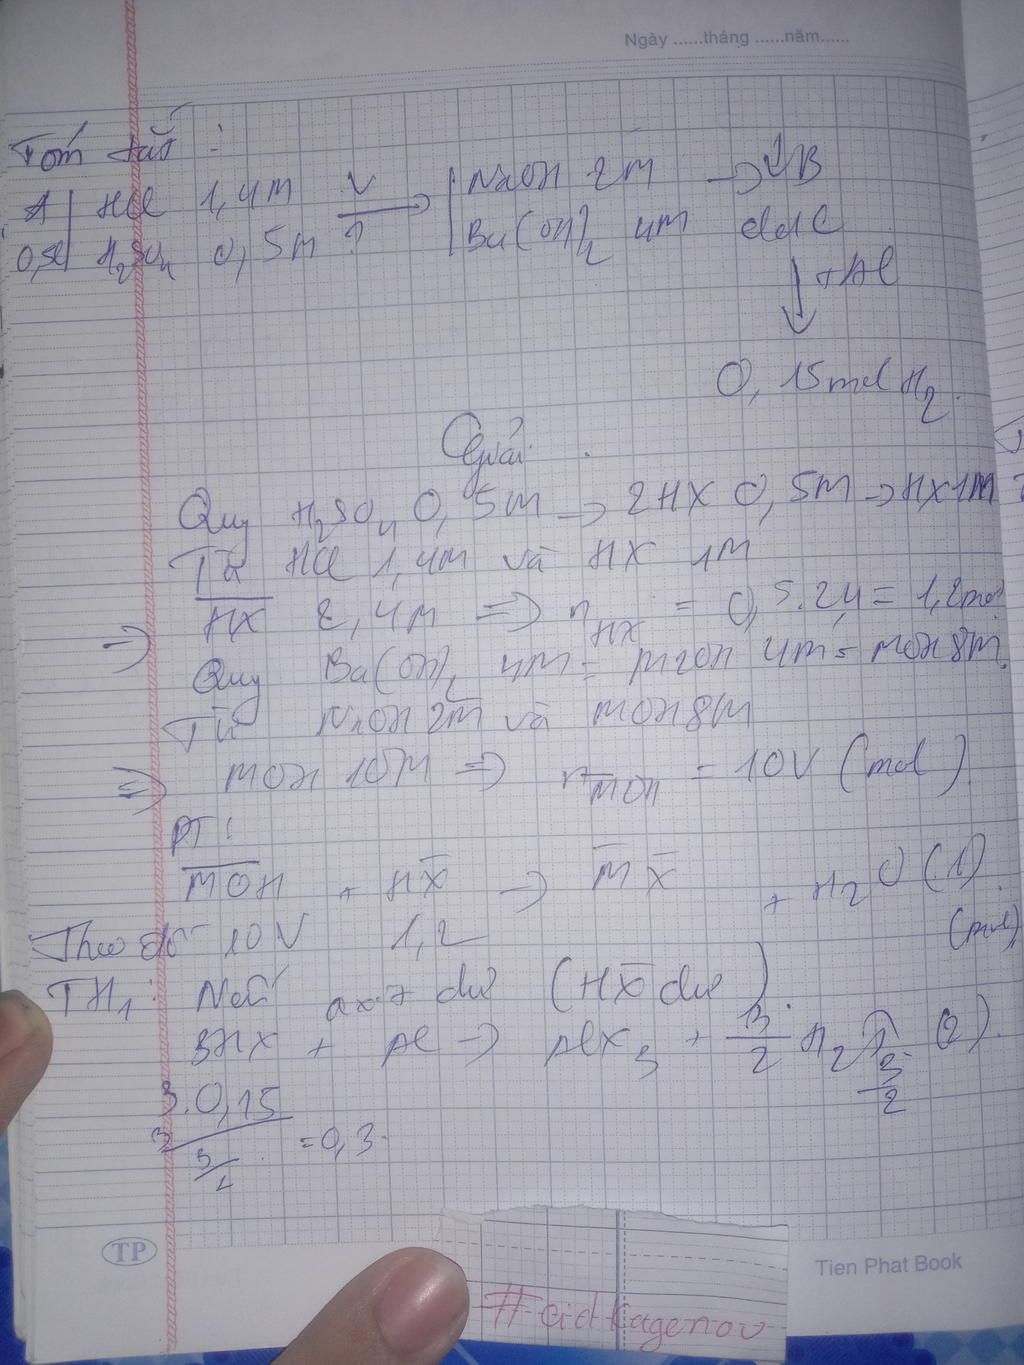 Ngày ......tháng ......năm......
Tóm tắt :
A | HCl 1,4M V → | NaOH 2M → ↓B
0,5l | H2SO4 0,5M ? | Ba(OH)2 4M ddC
↓ +Al
0,15mol H2.
Giải.
Quy H2SO4 0,5M → 2HX 0,5M → HX 1M
Từ HCl 1,4M và HX 1M
⇒ HX 2,4M ⇒ nHX = 0,5.2,4 = 1,2mol
Quy Ba(OH)2 4M = M2OH 4M = MOH 8M.
Từ NaOH 2M và MOH 8M
⇒ MOH 10M ⇒ nMOH = 10V (mol)
PT :
MOH + HX → MX + H2O (1)
Theo đề 10V 1,2 (mol)
TH1: Nếu axit dư (HX dư).
3HX + Al → AlX3 + 3/2 H2↑ (2).
3/2
3.0,15
3/2 = 0,3.
TP
Tien Phat Book
#oidkagenou